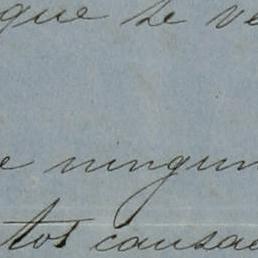 que se ve
e ningun
tos causa